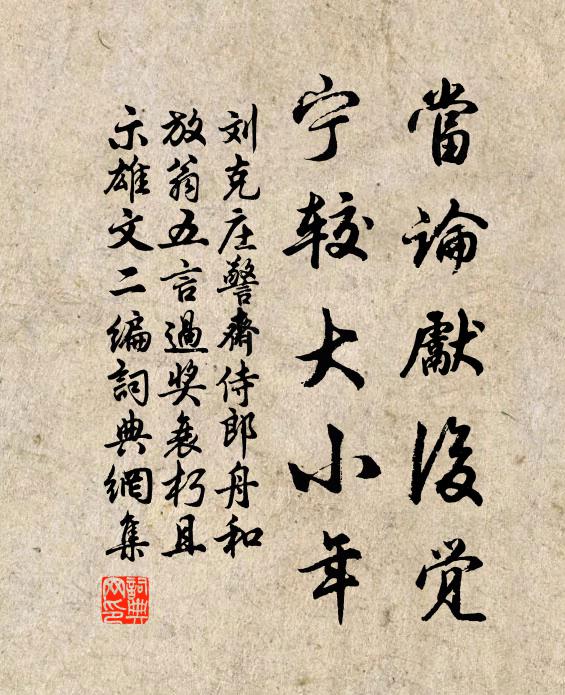 當論獻後觉
宁较大小年
刘克庄警齋侍郎舟和
放翁五言過奖衰朽且
示雄文二编詞典網集
詞典网印